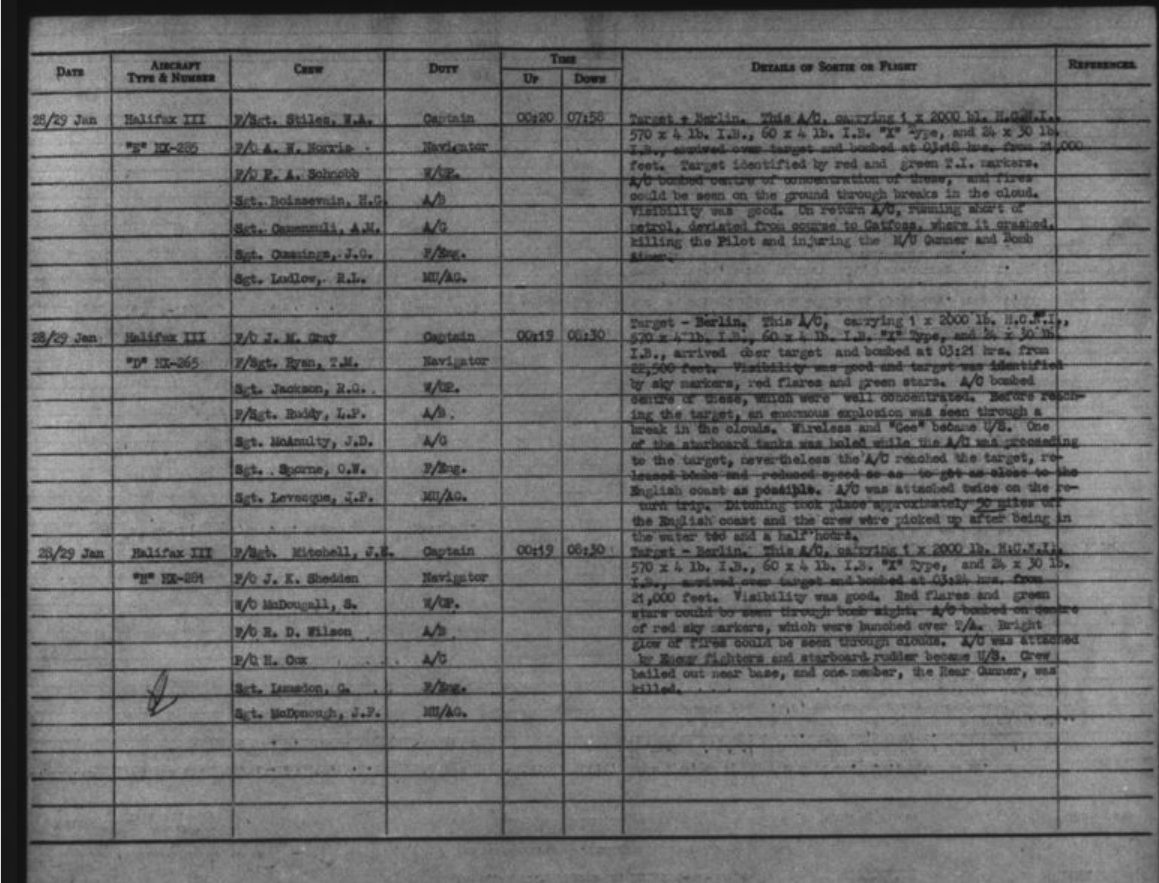 DATE AIRCRAFT TYPE & NUMBER CREW DUTY TIME UP DOWN DETAILS OF SORTIE OR FLIGHT REFERENCES
28/29 Jan Halifax III F/Sgt. Stiles, W.A. Captain 00:20 07:58 Target - Berlin. This A/C, carrying 1 x 2000 lb. H.C.N.I.,
570 x 4 lb. I.B., 60 x 4 lb. I.B. "X" Type, and 24 x 30 lb.
"E" HX-285 F/O A. W. Norris Navigator I.B., arrived over target and bombed at 03:18 hrs. from 21,000
feet. Target identified by red and green T.I. markers.
F/O F. A. Schnobb W/OP. A/C bombed centre of concentration of these, and fires
could be seen on the ground through breaks in the cloud.
Sgt. Boissevain, H.G. A/B Visibility was good. On return A/C, running short of
Sgt. A.M. A/G petrol, deviated from course to Catfoss, where it crashed,
killing the Pilot and injuring the M/U Gunner and Bomb
Sgt. Cummings, J.G. F/Eng. Aimer.
Sgt. Ludlow, R.L. MU/AG.
Target - Berlin. This A/C, carrying 1 x 2000 lb. H.C.N.I.,
28/29 Jan Halifax III F/O J. M. Gray Captain 00:19 08:30 570 x 4 lb. I.B., 60 x 4 lb. I.B. "X" Type, and 24 x 30 lb.
I.B., arrived ober target and bombed at 03:21 hrs. from
"D" HX-265 F/Sgt. Ryan, T.M. Navigator 22,500 feet. Visibility was good and target was identified
by sky markers, red flares and green stars. A/C bombed
Sgt. Jackson, R.G. W/OP. centre of these, which were well concentrated. Before reach-
F/Sgt. Ruddy, L.P. A/B ing the target, an enormous explosion was seen through a
break in the clouds. Wireless and "Gee" became U/S. One
Sgt. McAnulty, J.D. A/G of the starboard tanks was holed while the A/C was proceeding
to the target, nevertheless the A/C reached the target, re-
Sgt. Sporne, O.W. F/Eng. leased bombs and reduced speed so as to get as close to the
Sgt. Levesque, J.P. MU/AG. English coast as possible. A/C was attached twice on the re-
turn trip. Ditching took place approximately 50 miles off
the English coast and the crew were picked up after being in
the water two and a half hours.
28/29 Jan Halifax III F/Sgt. Mitchell, J. Captain 00:19 08:30 Target - Berlin. This A/C, carrying 1 x 2000 lb. H.C.N.I.,
570 x 4 lb. I.B., 60 x 4 lb. I.B. "X" Type, and 24 x 30 lb.
"H" HX-281 F/O J. K. Shedden Navigator I.B., arrived over target and bombed at 03:24 hrs. from
W/O McDougall, S. W/OP. 21,000 feet. Visibility was good. Red flares and green
stars could be seen through bomb sight. A/C bombed on centre
F/O R. D. Wilson A/B of red sky markers, which were bunched over T/A. Bright
glow of fires could be seen through clouds. A/C was attached
F/O H. Cox A/G by Enemy fighters and starboard rudder became U/S. Crew
bailed out near base, and one member, the Rear Gunner, was
Sgt. Lumsdon, G. F/Eng. killed.
Sgt. McDonough, J.P. MU/AG.